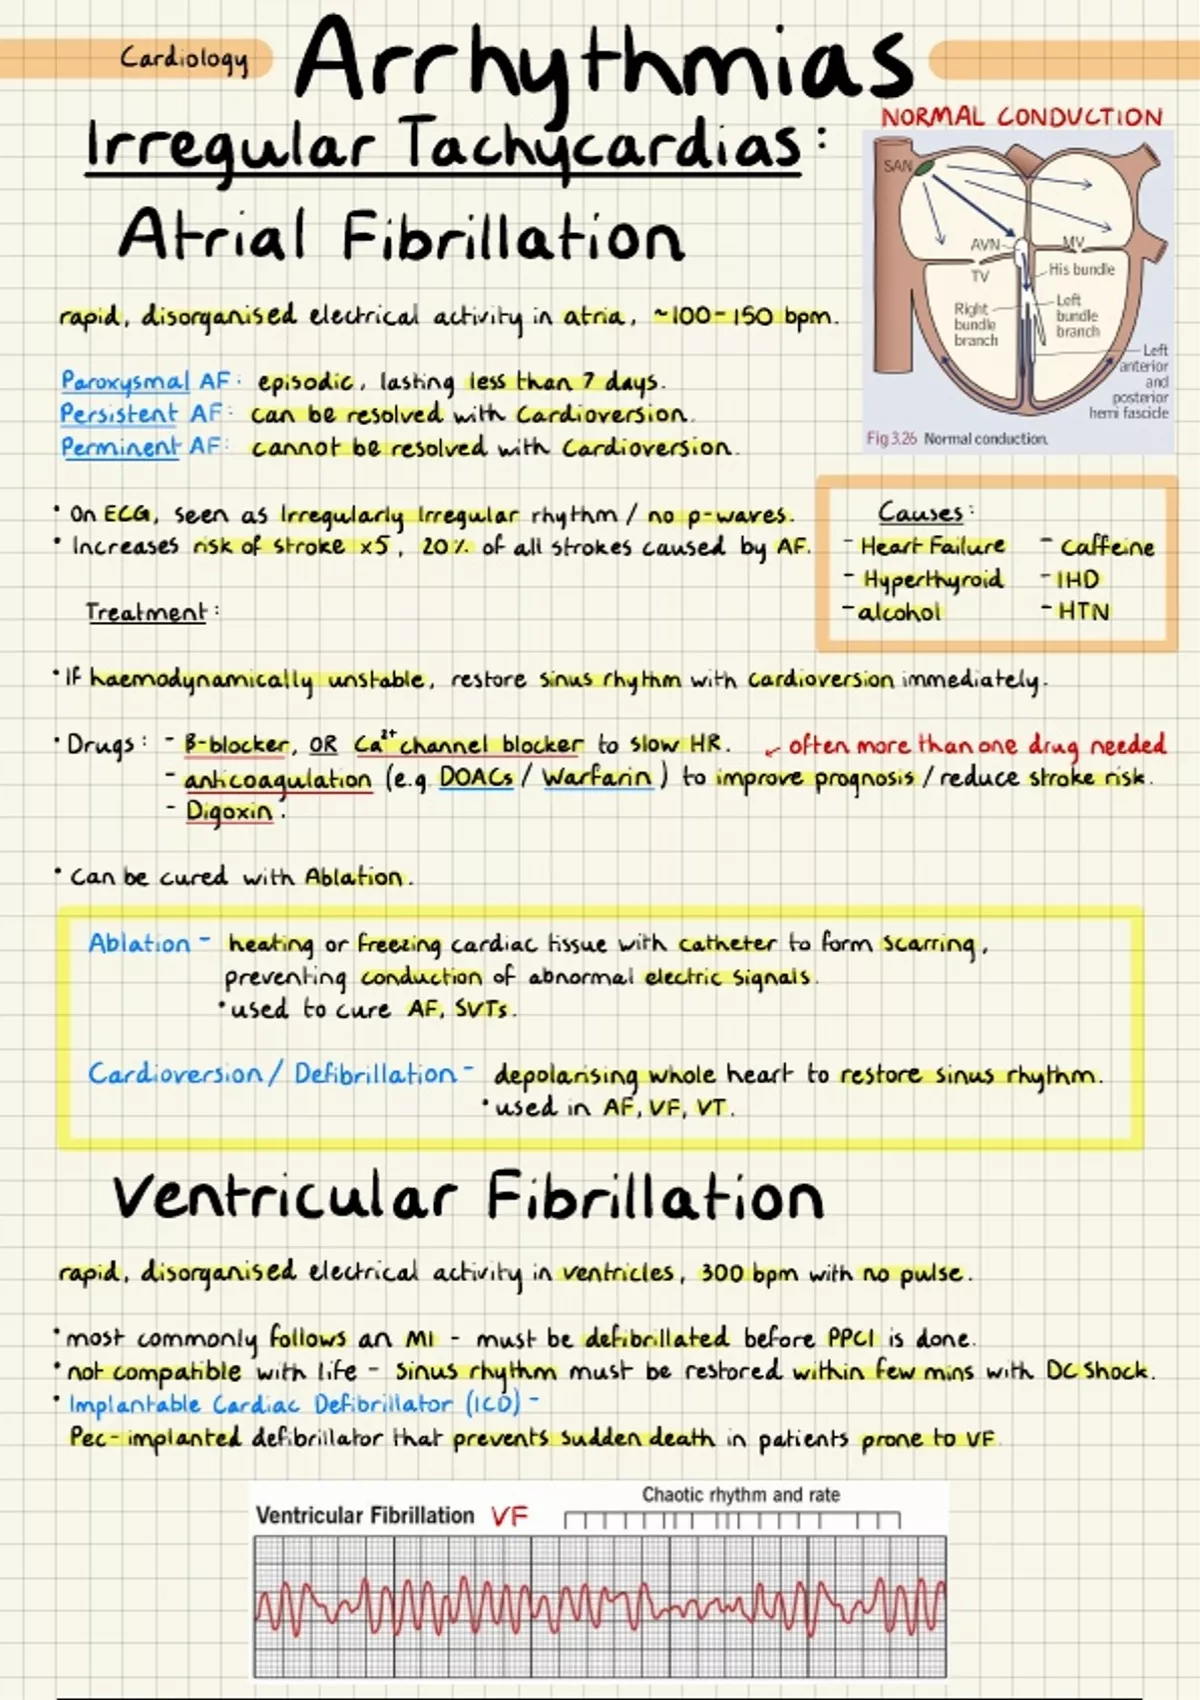 Cardiology
Arrhythmias
Irregular Tachycardias:
NORMAL CONDUCTION
SAN
AVN
MV
TV
His bundle
Right bundle branch
Left bundle branch
Left anterior and posterior hemi fascicle
Fig 3.26 Normal conduction.
Atrial Fibrillation
rapid, disorganised electrical activity in atria, ~100-150 bpm.
Paroxysmal AF: episodic, lasting less than 7 days.
Persistent AF: can be resolved with Cardioversion.
Perminent AF: cannot be resolved with Cardioversion.
• On ECG, seen as Irregularly Irregular rhythm / no p-waves.
• Increases risk of stroke x5, 20% of all strokes caused by AF.
Causes:
- Heart Failure - caffeine
- Hyperthyroid - IHD
- alcohol - HTN
Treatment:
• If haemodynamically unstable, restore sinus rhythm with cardioversion immediately.
• Drugs: - β-blocker, OR Ca²⁺ channel blocker to slow HR. ↙ often more than one drug needed
- anticoagulation (e.g. DOACs / Warfarin) to improve prognosis / reduce stroke risk.
- Digoxin.
• Can be cured with Ablation.
Ablation - heating or freezing cardiac tissue with catheter to form scarring,
preventing conduction of abnormal electric signals.
• used to cure AF, SVTs.
Cardioversion / Defibrillation - depolarising whole heart to restore sinus rhythm.
• used in AF, VF, VT.
Ventricular Fibrillation
rapid, disorganised electrical activity in ventricles, 300 bpm with no pulse.
• most commonly follows an MI - must be defibrillated before PPCI is done.
• not compatible with life - sinus rhythm must be restored within few mins with DC shock.
• Implantable Cardiac Defibrillator (ICD) -
Pec-implanted defibrillator that prevents sudden death in patients prone to VF
Chaotic rhythm and rate
Ventricular Fibrillation VF